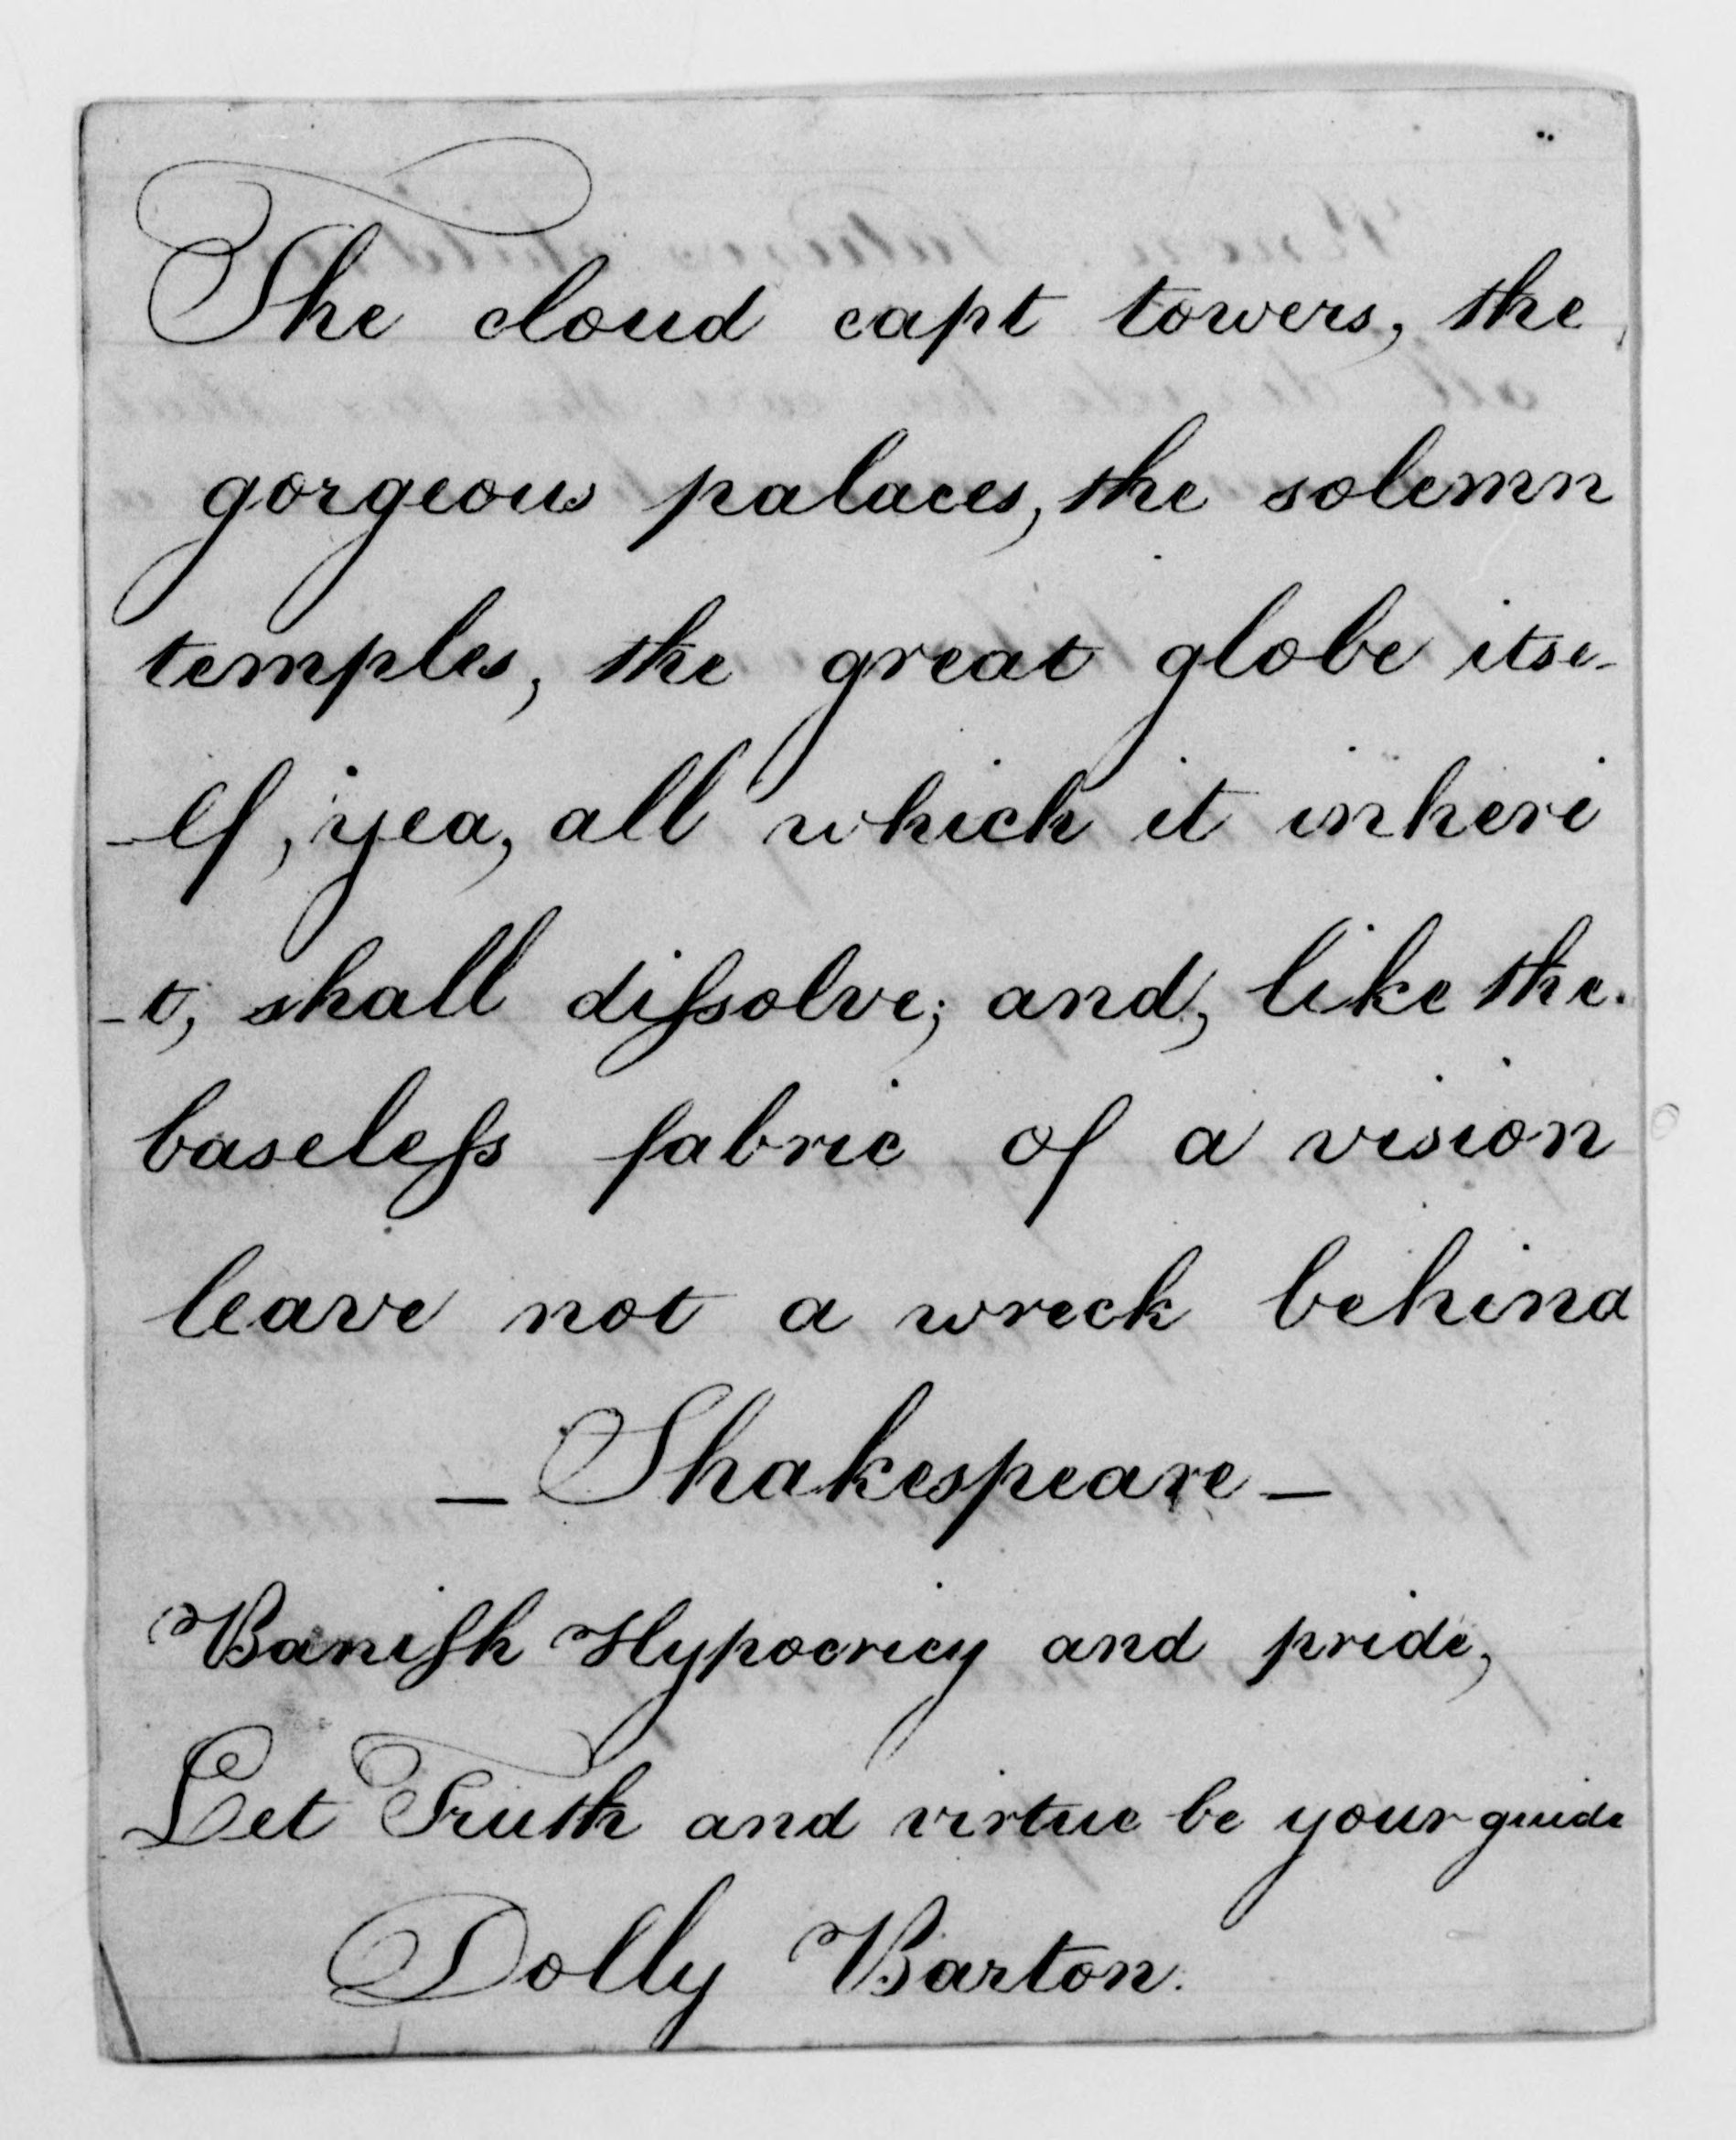 The cloud capt towers, the
gorgeous palaces, the solemn
temples, the great globe itse-
-lf, yea, all which it inheri
-t, shall diſsolve; and, like the.
baseleſs fabric of a vision
leave not a wreck behind
— Shakespeare —
Baniſh Hypocricy and pride,
Let Truth and virtue be your guide
Dolly Barton.